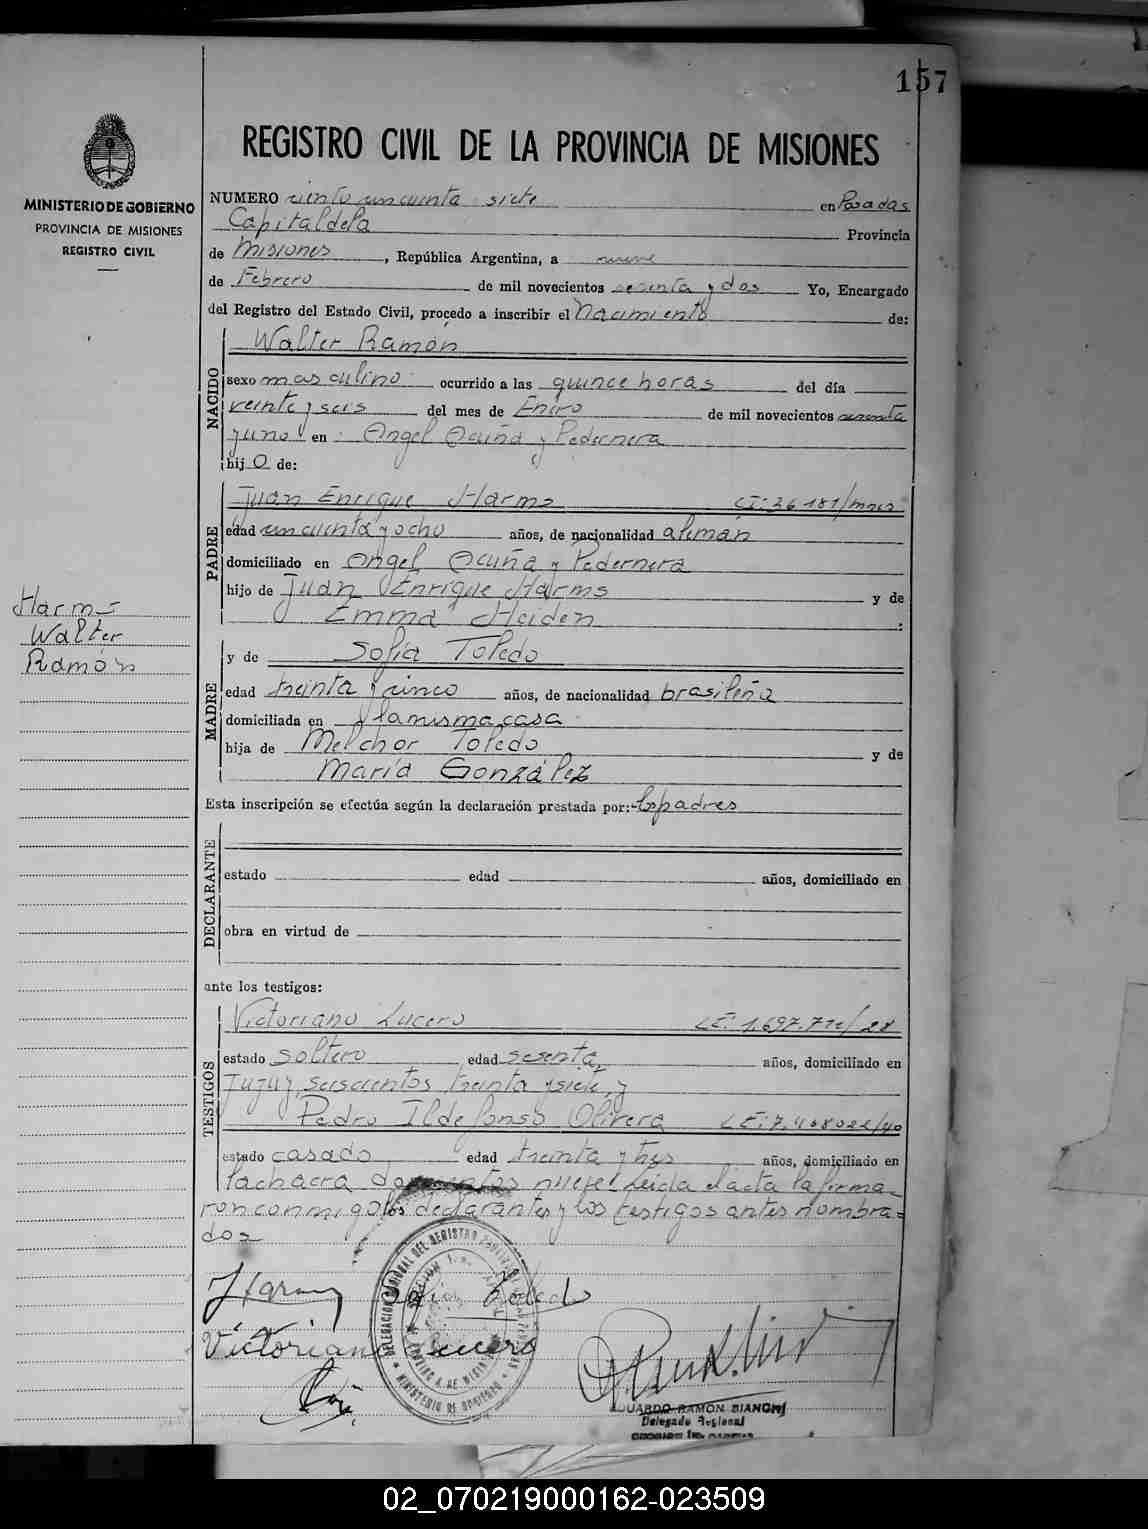 157
REGISTRO CIVIL DE LA PROVINCIA DE MISIONES
MINISTERIO DE GOBIERNO
PROVINCIA DE MISIONES
REGISTRO CIVIL
NUMERO ciento cincuenta siete en Posadas
Capital de la Provincia
de Misiones, República Argentina, a nueve
de Febrero de mil novecientos sesenta y dos Yo, Encargado
del Registro del Estado Civil, procedo a inscribir el Nacimiento de:
NACIDO
Walter Ramón
sexo masculino ocurrido a las quince horas del día
veinte y seis del mes de Enero de mil novecientos sesenta
y uno en Angel Acuña y Pedernera
hijo de:
PADRE
Juan Enrique Harms CI: 36181/mnes
edad cincuenta y ocho años, de nacionalidad alemán
domiciliado en Angel Acuña y Pedernera
hijo de Juan Enrique Harms y de
Emma Heiden :
Harms
Walter
Ramón
MADRE
y de Sofía Toledo
edad treinta y cinco años, de nacionalidad brasileña
domiciliada en la misma casa
hija de Melchor Toledo y de
María González
Esta inscripción se efectúa según la declaración prestada por:- los padres
DECLARANTE
estado edad años, domiciliado en
obra en virtud de
ante los testigos:
TESTIGOS
Victoriano Lucero LE: 1.697.712/28
estado soltero edad sesenta años, domiciliado en
Jujuy seiscientos treinta y siete, y
Pedro Ildefonso Olivera LE: 7.408022/40
estado casado edad treinta y tres años, domiciliado en
Lachacra doscientos nueve Leida el acta la firma-
ron conmigo los declarantes y los testigos antes nombra=
dos
Harms Sofia Toledo
Victoriano Lucero
EDUARDO RAMON BIANCHI
Delegado Regional
MINISTERIO DE GOBIERNO
02_070219000162-023509